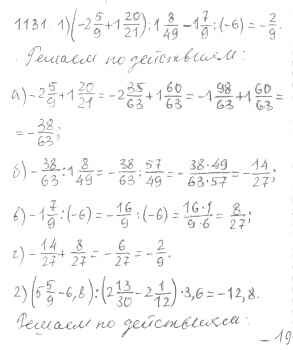 1131. 1)(-2 5/9 + 1 20/21) : 1 8/49 - 1 7/9 : (-6) = -2/9.
Решаем по действиям:
а) -2 5/9 + 1 20/21 = -2 35/63 + 1 60/63 = -1 98/63 + 1 60/63 =
= -38/63;
б) -38/63 : 1 8/49 = -38/63 : 57/49 = -38·49/63·57 = -14/27;
в) -1 7/9 : (-6) = -16/9 : (-6) = 16·1/9·6 = 8/27;
г) -14/27 + 8/27 = -6/27 = -2/9.
2) (5 5/9 - 6,8) : (2 13/30 - 2 1/12) · 3,6 = -12,8.
Решаем по действиям:
- 19